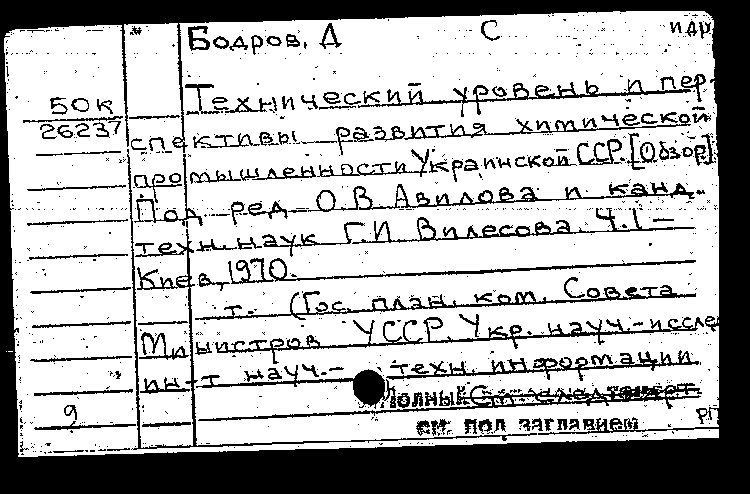 Бодров, Д С идр
50к
26237
Технический уровень и пер-
спективы развития химической
промышленности Украинской ССР. [Обзор]
Под ред. О.В. Авилова и канд.
техн. наук Г.И. Вилесова. Ч.1 —
Киев, 1970.
т. (Гос. план. ком. Совета
Министров УССР. Укр. науч.-иссле
ин-т науч.- техн. информации
9
Полный
см. под заглавием